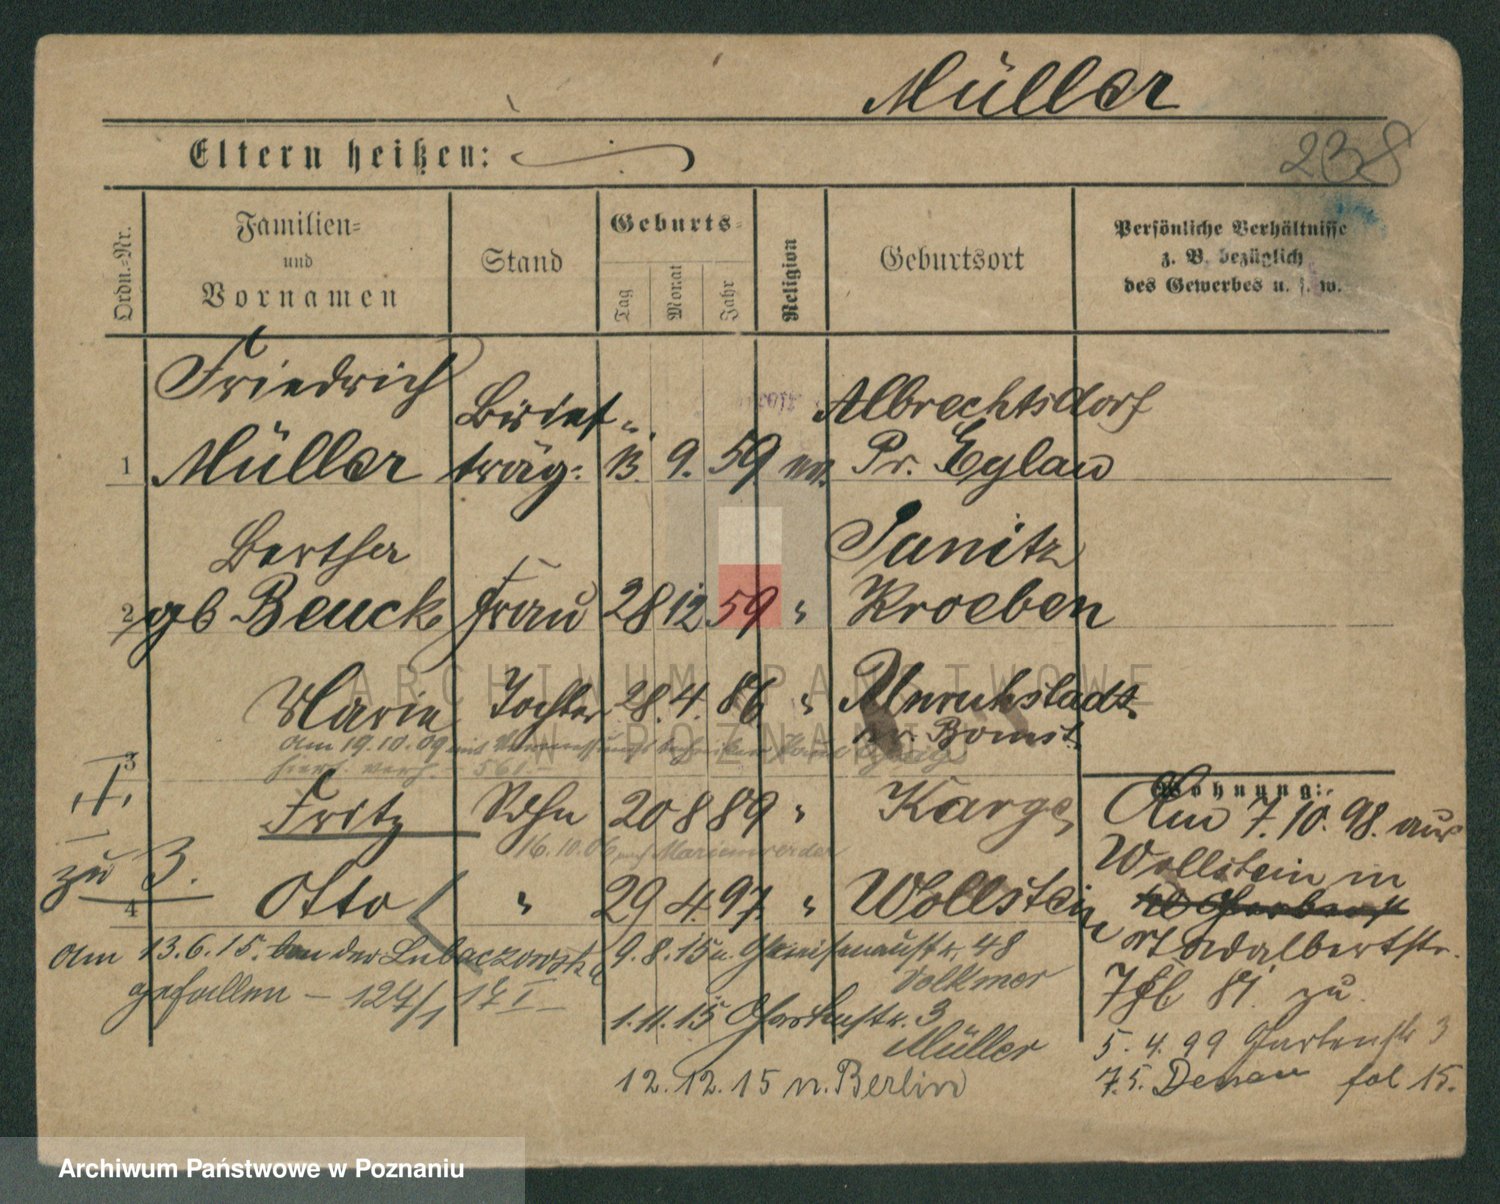 Müller
238
Eltern heißen:
Ordn.-Nr.
Familien-
und
Vornamen
Stand
Geburts-
Tag
Monat
Jahr
Religion
Geburtsort
Persönliche Verhältnisse
z. B. bezüglich
des Gewerbes u. s. w.
Friedrich Brief- Albrechtsdorf
1 Müller träg. 13. 9. 59 ev. Pr. Eylau
Bertha Sanitz
2 gb Beuck Frau 28 12 59 " Kroeben
Marie Tochter 28. 4. 86. " Unruhstadt
Kr. Bomst.
Am 19.10.09 mit
verh. 561
3
Fritz Sohn 20 8 89 " Karge
16.10.06 nach Marienwerder
zu 3.
4 Otto " 29 4. 97. " Wollstein
Am 13.6.15. bei der Lubaczowska
gefallen – 124/1 17 I –
9.8.15 n. Gneisenaustr. 48
Volkmer
1.11.15 Gartenstr. 3
Müller
12.12.15 n. Berlin
Wohnung:
Am 7.10.98. aus
Wollstein in
St Adalbertstr.
7 bei zu
5.4.99 Gartenstr 3
7.5. fol 15.
ARCHIWUM PAŃSTWOWE
W POZNANIU
Archiwum Państwowe w Poznaniu